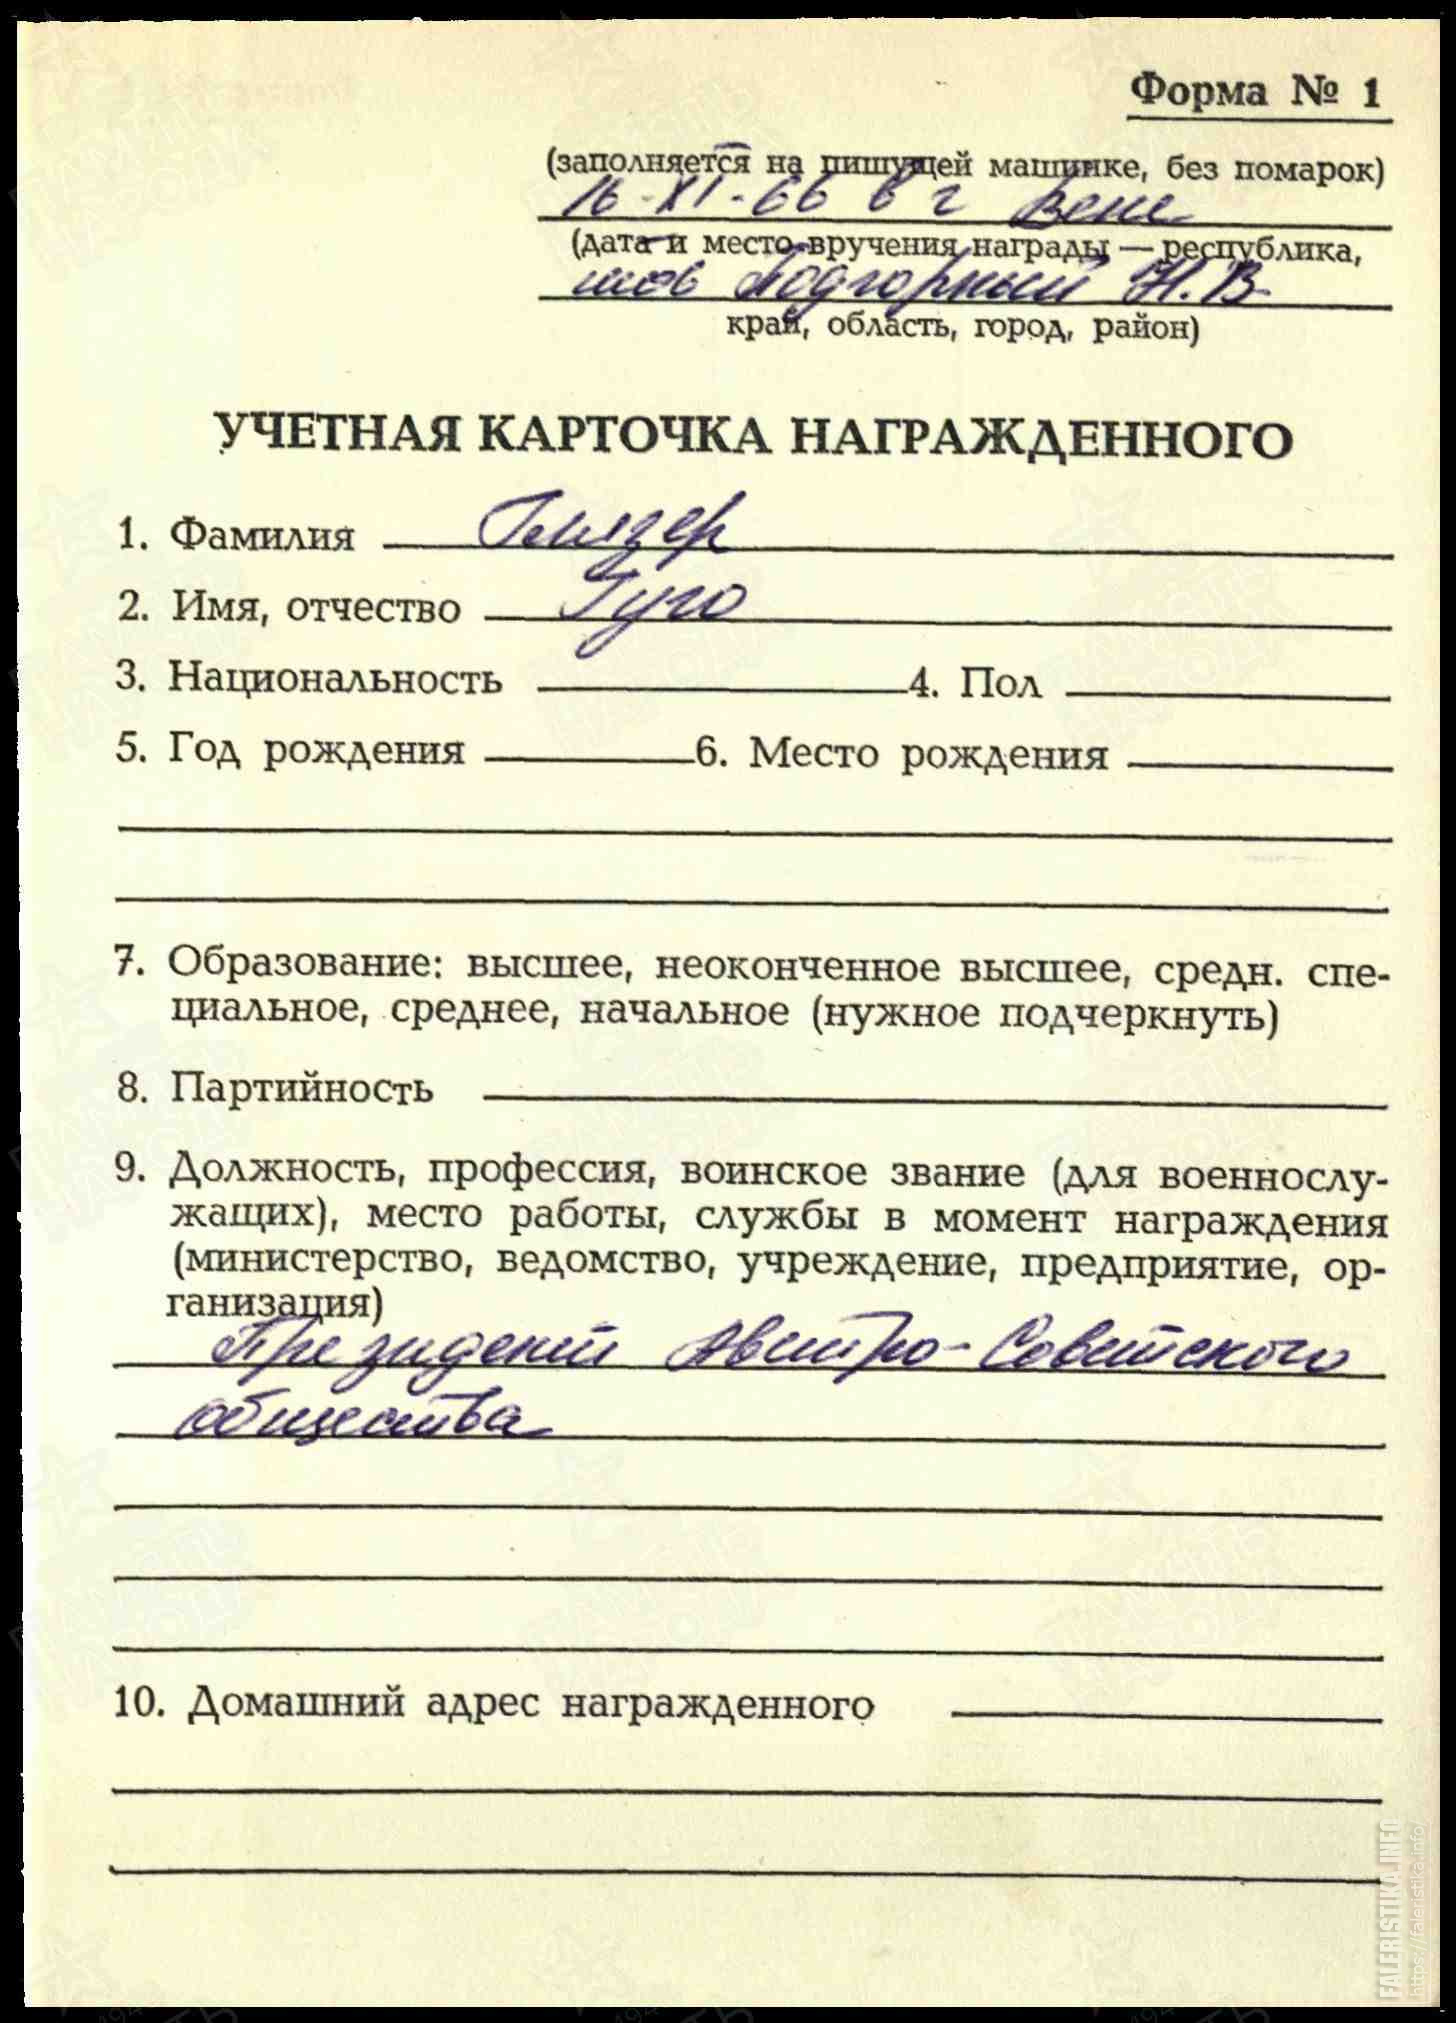 Форма № 1
(заполняется на пишущей машинке, без помарок)
16-XI-66 в г Вене
(дата и место вручения награды — республика,
тов Подгорный Н.В
край, область, город, район)
УЧЕТНАЯ КАРТОЧКА НАГРАЖДЕННОГО
1. Фамилия Глязер
2. Имя, отчество Гуго
3. Национальность 4. Пол
5. Год рождения 6. Место рождения
7. Образование: высшее, неоконченное высшее, средн. спе-
циальное, среднее, начальное (нужное подчеркнуть)
8. Партийность
9. Должность, профессия, воинское звание (для военнослу-
жащих), место работы, службы в момент награждения
(министерство, ведомство, учреждение, предприятие, ор-
ганизация)
Президент Австро-Советского
общества
10. Домашний адрес награжденного
FALERISTIKA.INFO
https://faleristika.info/